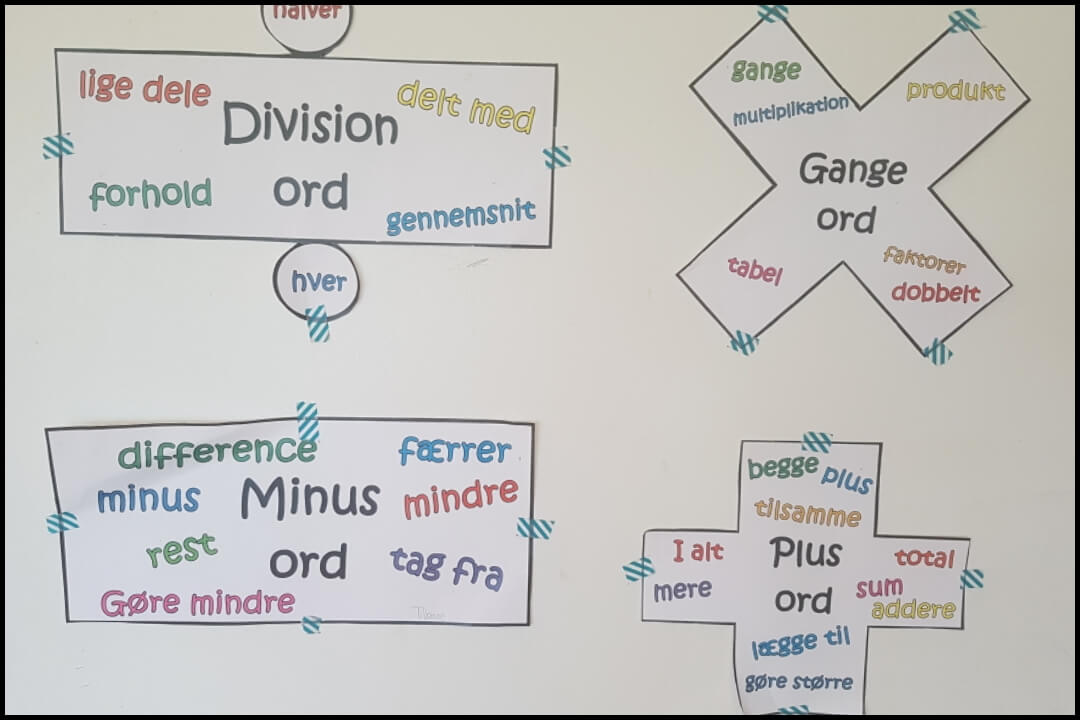 halver
lige dele
delt med
Division
ord
forhold
gennemsnit
hver
gange
multiplikation
produkt
Gange
ord
tabel
faktorer
dobbelt
difference
færrer
minus
Minus
mindre
rest
ord
tag fra
Gøre mindre
begge plus
tilsamme
I alt
Plus
total
mere
ord
sum
addere
lægge til
gøre større